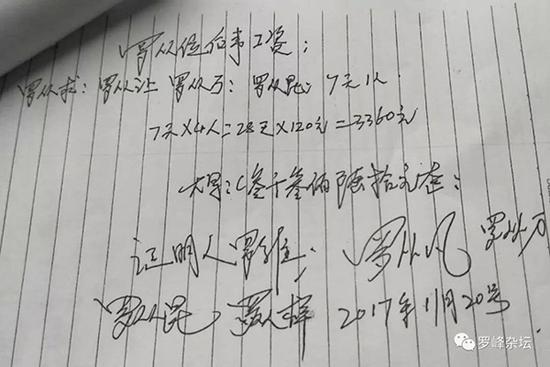 罗从位做事工资:
罗从求:罗从让 罗从万:罗从昆: 7天1人
7天×4人=28天×120元=3360元
大写:(叁千叁佰陆拾元整:
证明人罗维: 罗从凡 罗从万
罗从昆 罗从祥 2017年11月20号
罗峰杂坛